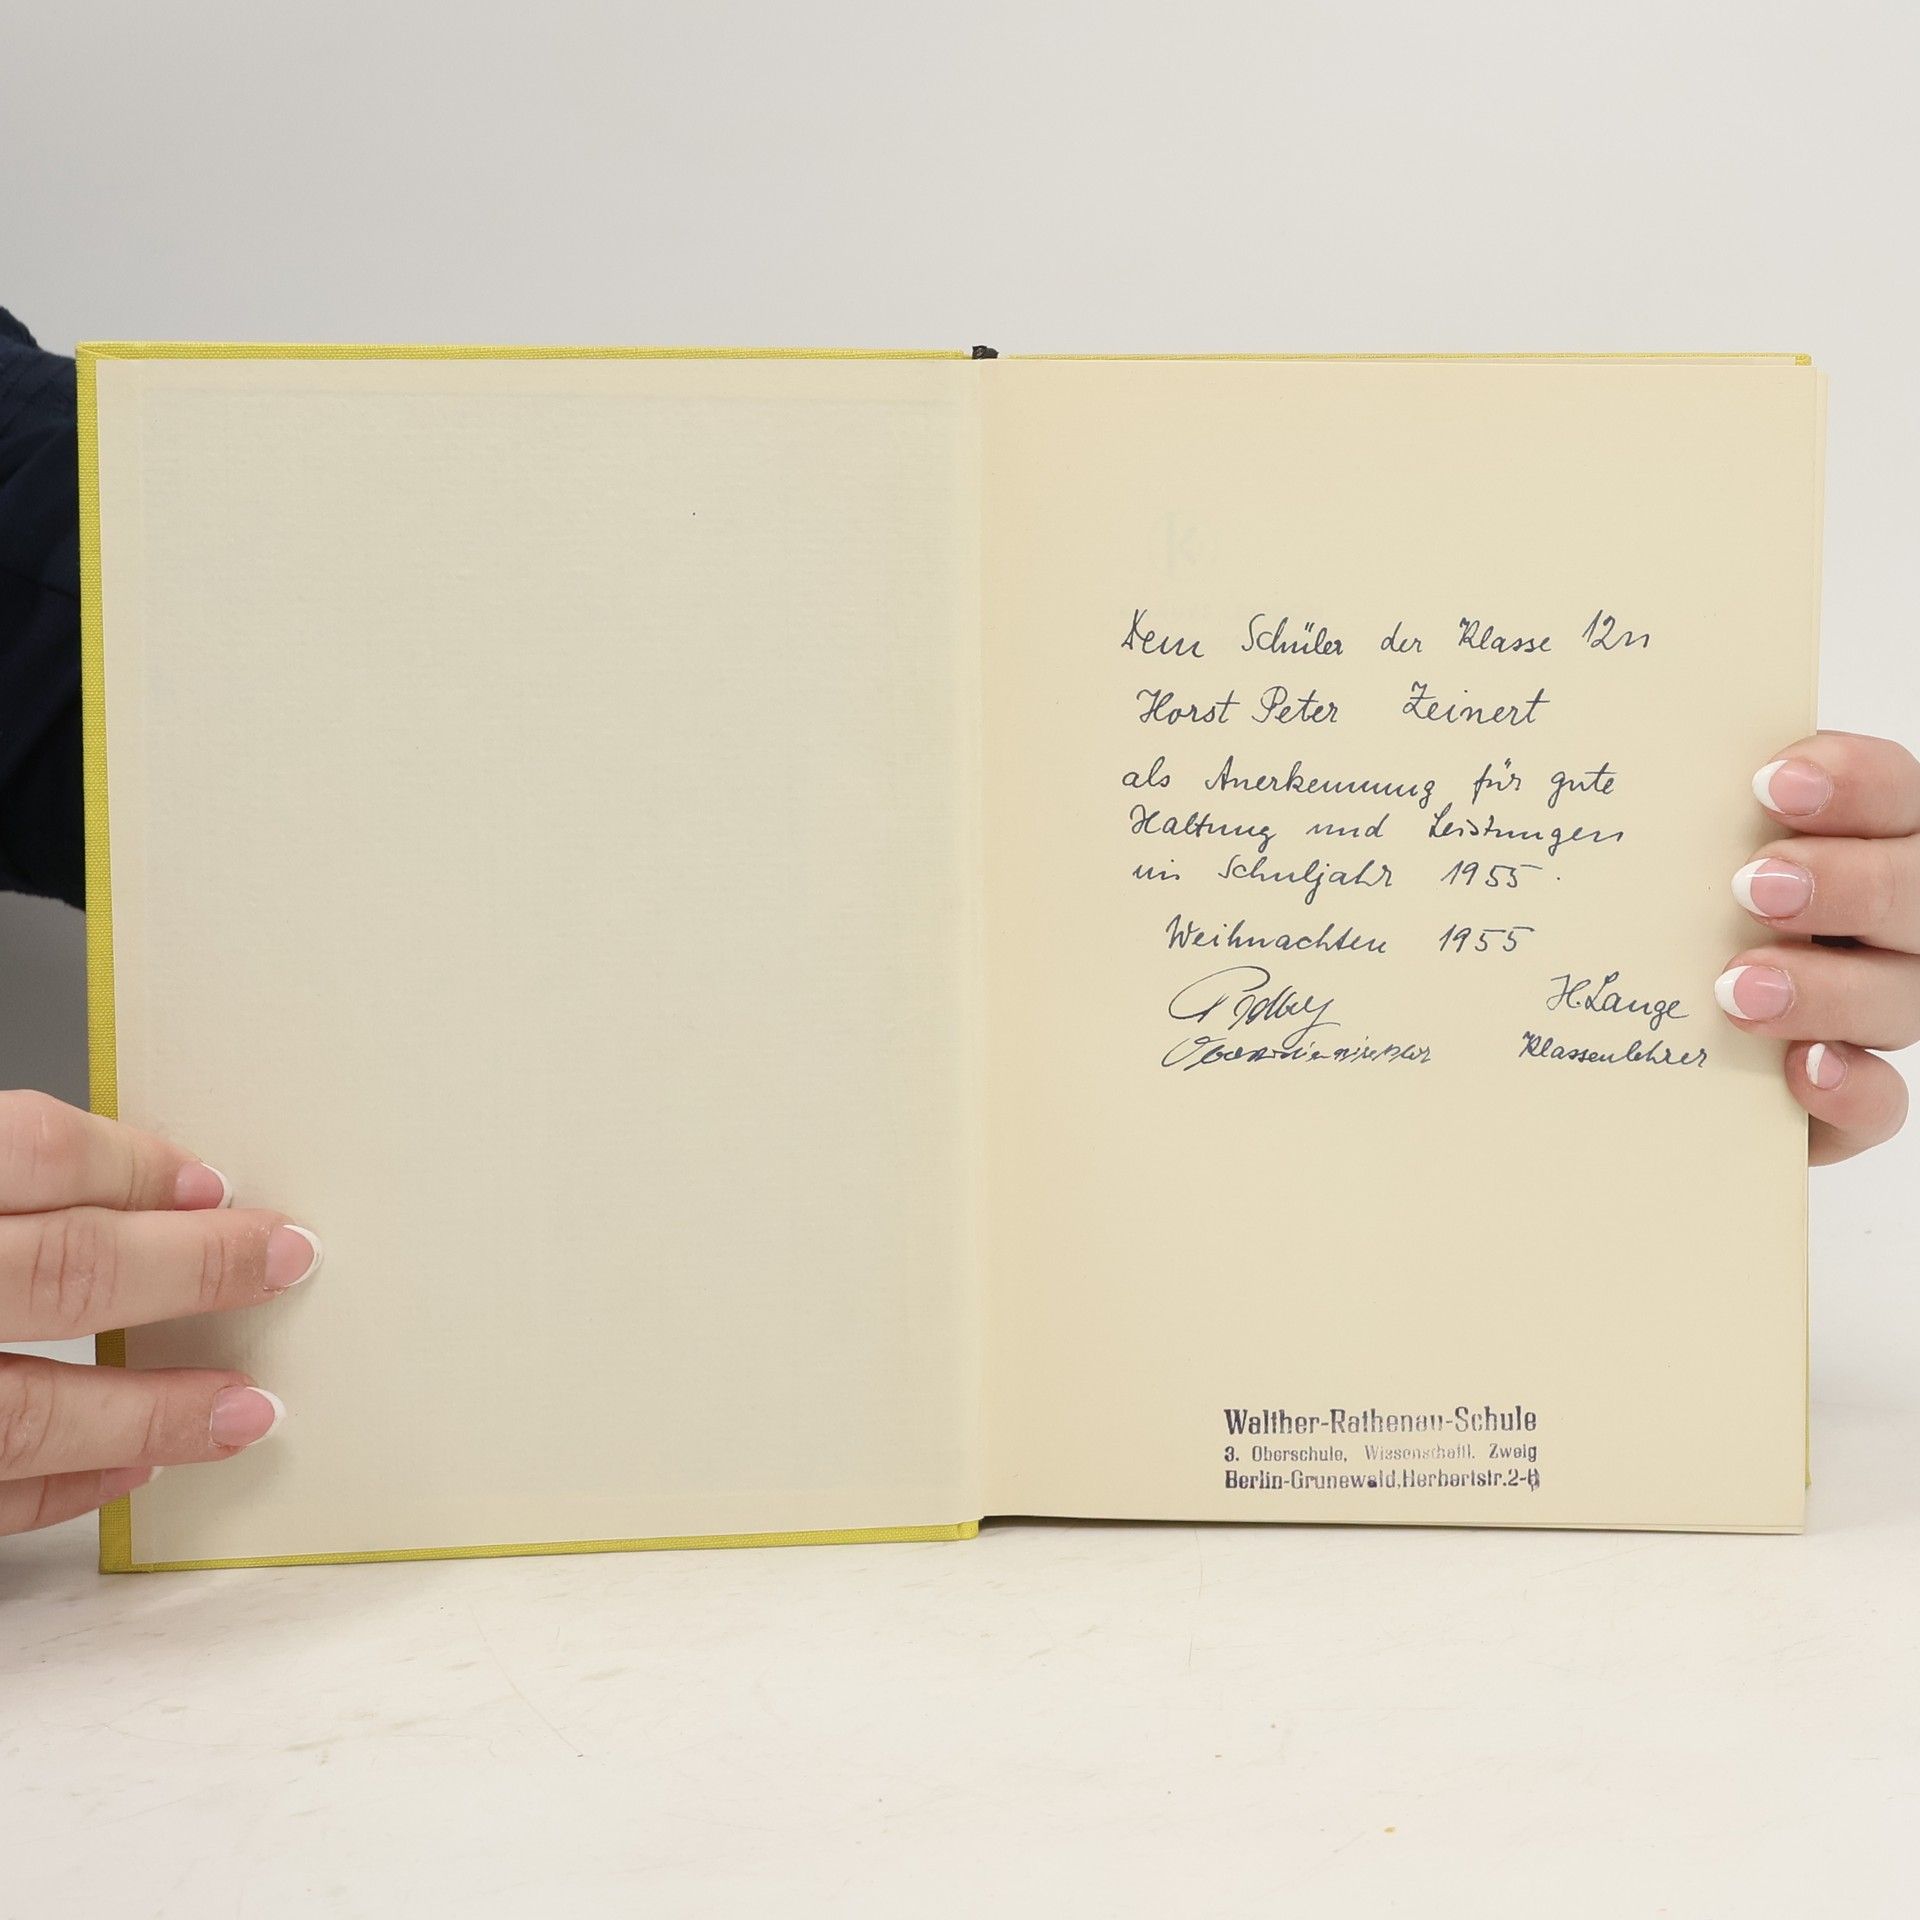 Dem Schüler der Klasse 12n
Horst Peter Zeinert
als Anerkennung für gute
Haltung und Leistungen
im Schuljahr 1955.
Weihnachten 1955
H. Lange
Klassenlehrer
Walther-Rathenau-Schule
3. Oberschule, Wissenschaftl. Zweig
Berlin-Grunewald, Herbertstr. 2-6